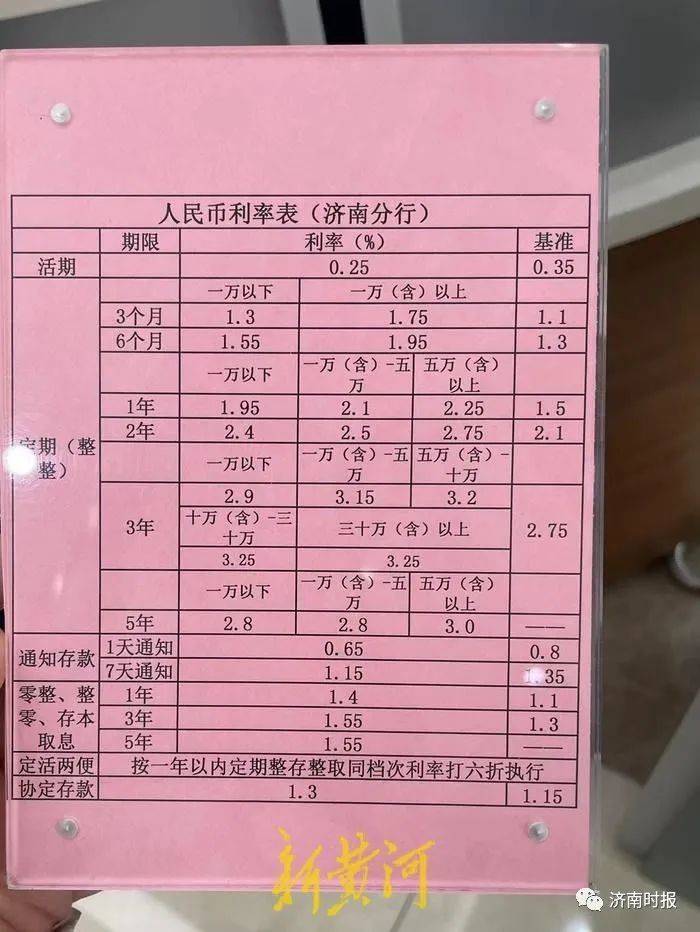 人民币利率表（济南分行）
期限 利率（%） 基准
活期 0.25 0.35
一万以下 一万（含）以上
3个月 1.3 1.75 1.1
6个月 1.55 1.95 1.3
一万以下 一万（含）-五万 五万（含）以上
1年 1.95 2.1 2.25 1.5
2年 2.4 2.5 2.75 2.1
定期（整整）
一万以下 一万（含）-五万 五万（含）-十万
2.9 3.15 3.2
3年 十万（含）-三十万 三十万（含）以上 2.75
3.25 3.25
一万以下 一万（含）-五万 五万（含）以上
5年 2.8 2.8 3.0 ——
通知存款 1天通知 0.65 0.8
7天通知 1.15 1.35
零整、整零、存本取息 1年 1.4 1.1
3年 1.55 1.3
5年 1.55 ——
定活两便 按一年以内定期整存整取同档次利率打六折执行
协定存款 1.3 1.15
新黄河
济南时报